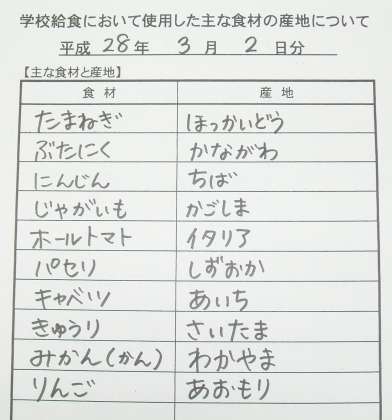 学校給食において使用した主な食材の産地について
平成 28 年 3 月 2 日分
【主な食材と産地】
食材 産地
たまねぎ ほっかいどう
ぶたにく かながわ
にんじん ちば
じゃがいも かごしま
ホールトマト イタリア
パセリ しずおか
キャベツ あいち
きゅうり さいたま
みかん(かん) わかやま
りんご あおもり